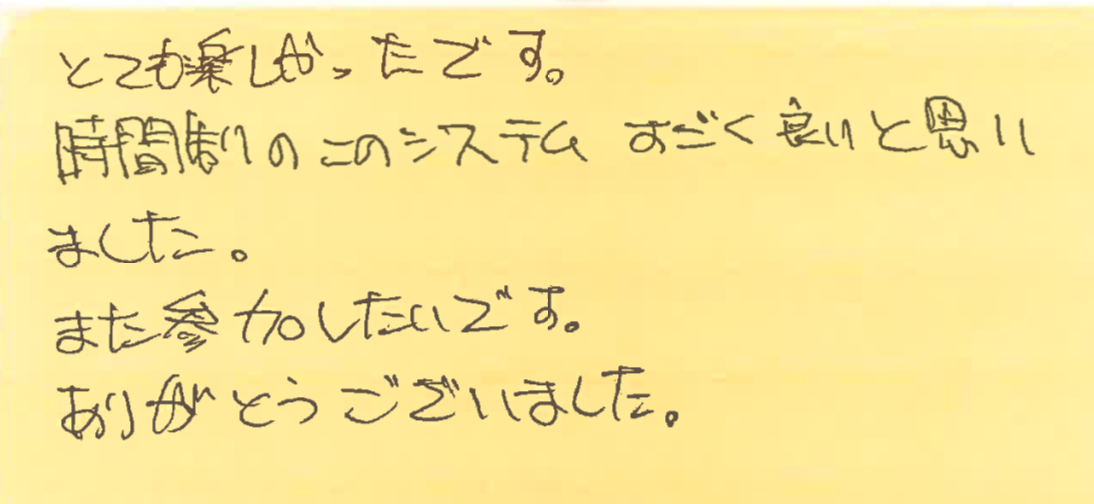 とても楽しかったです。
時間制のこのシステム すごく良いと思い
ました。
また参加したいです。
ありがとうございました。